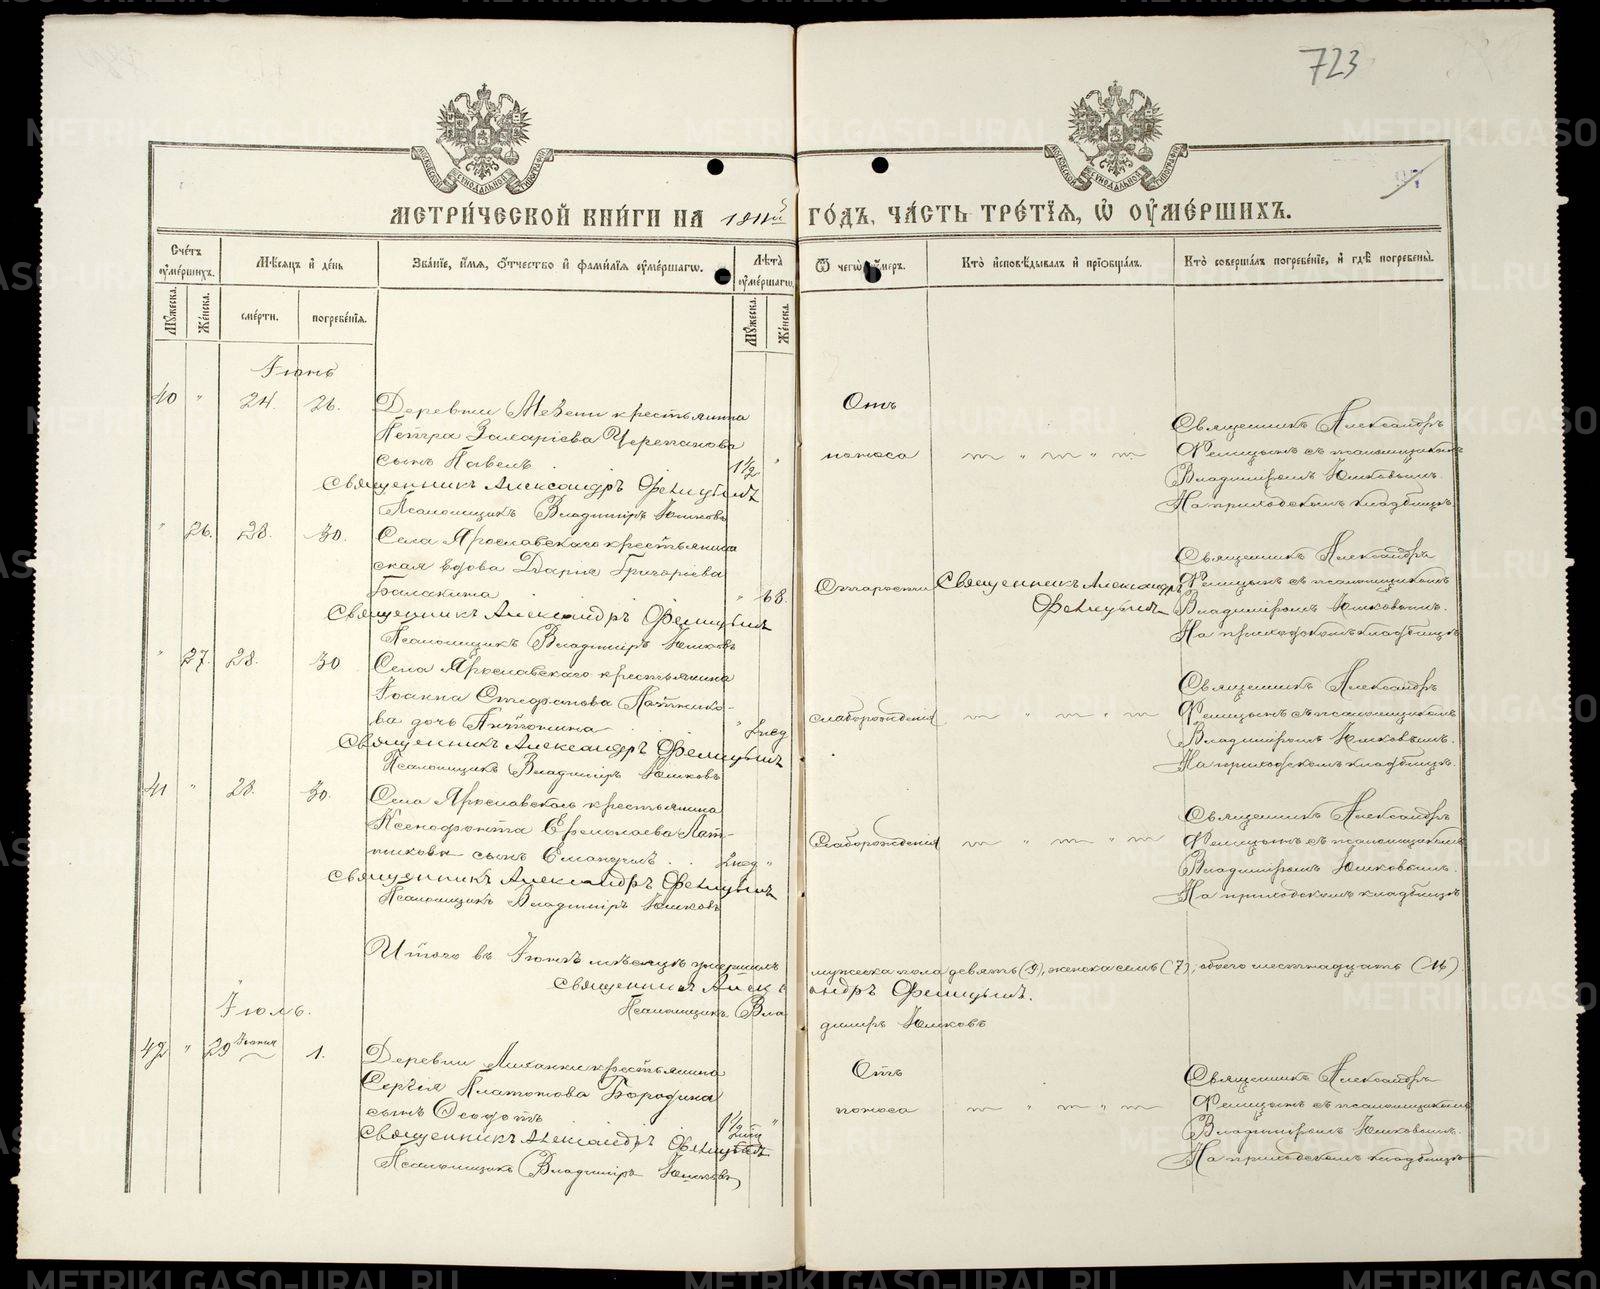 723
97
МОСКОВСКОЙ СѴНОДАЛЬНОЙ ТИПОГРАФІИ
МОСКОВСКОЙ СѴНОДАЛЬНОЙ ТИПОГРАФІИ
МЕТРИ́ЧЕСКОЙ КНИ́ГИ НА
ГО́ДЪ, ЧА́СТЬ ТРЕ́ТІѦ, Ѡ҆ ОУ҆МЕ́РШИХЪ.
Сче́тъ оу҆ме́ршихъ.
Мѣ́сѧцъ и҆ де́нь
Зва́ніе, и҆́мѧ, о҆́тчество и҆ фами́лїѧ оу҆ме́ршагѡ.
Лѣ́та оу҆ме́ршагѡ.
Ѿ чегѡ̀ оу҆́меръ.
Кто̀ и҆сповѣ́дывалъ и҆ прїѡбща́лъ.
Кто̀ соверша́лъ погребе́нїе, и҆ гдѣ̀ погребены̀.
Мꙋ́жеска.
Же́нска.
сме́рти.
погребе́нїѧ.
Мꙋ́жеска.
Же́нска.
Іюнь
40 " 24. 26. Деревни Мезени крестьянина
Петра Захаріева Черепанова
сынъ Павелъ 1½ "
Священникъ Александръ Фелицынъ
Псаломщикъ Владиміръ Юшковъ
Отъ
поноса
Священникъ Александръ
Фелицынъ съ псаломщикомъ
Владиміромъ Юшковымъ.
На приходскомъ кладбищѣ
" 26. 28. 30. Села Ярославскаго крестьянская
вдова Дарія Григоріева
Балакина " 68.
Священникъ Александръ Фелицынъ
Псаломщикъ Владиміръ Юшковъ
Отъ старости
Священникъ Александръ
Фелицынъ
Священникъ Александръ
Фелицынъ съ псаломщикомъ
Владиміромъ Юшковымъ.
На приходскомъ кладбищѣ
" 27. 28. 30 Села Ярославскаго крестьянина
Іоанна Стефанова Патнико-
ва дочь Антонина " 2 нед
Священникъ Александръ Фелицынъ
Псаломщикъ Владиміръ Юшковъ
Слаборожденія
Священникъ Александръ
Фелицынъ съ псаломщикомъ
Владиміромъ Юшковымъ.
На приходскомъ кладбищѣ.
41 " 28. 30. Села Ярославскаго крестьянина
Ксенофонта Ермолаева Пат-
никова сынъ Емануилъ 2 нед "
Священникъ Александръ Фелицынъ
Псаломщикъ Владиміръ Юшковъ
Слаборожденія
Священникъ Александръ
Фелицынъ съ псаломщикомъ
Владиміромъ Юшковымъ.
На приходскомъ кладбищѣ
Итого въ Іюнѣ мѣсяцѣ умершихъ мужеска пола девять (9), женска семь (7), обоего шестнадцать (16)
Священникъ Александръ Фелицынъ.
Псаломщикъ Владиміръ Юшковъ
Іюль.
42 " 29 Іюня 1. Деревни крестьянина
Сергія Платонова Бородина
сынъ Ѳеодотъ 1½ "
Священникъ Александръ Фелицынъ
Псаломщикъ Владиміръ Юшковъ
Отъ
поноса
Священникъ Александръ
Фелицынъ съ псаломщикомъ
Владиміромъ Юшковымъ.
На приходскомъ кладбищѣ
METRIKI.GASO-URAL.RU